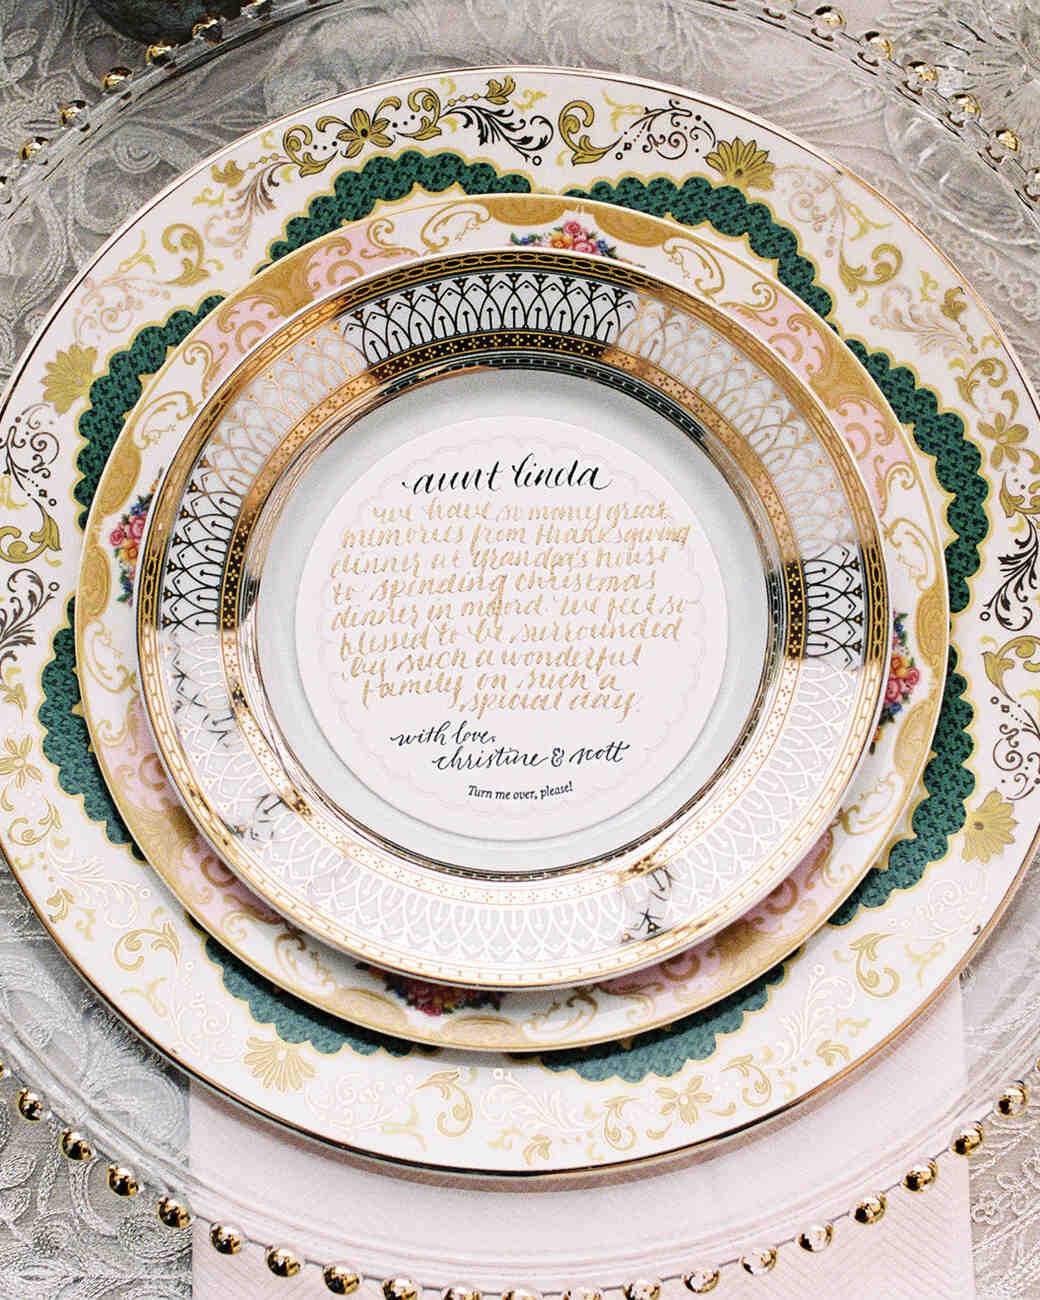 aunt linda
we have so many great
memories from thanksgiving
dinner at grandpa's house
to spending christmas
dinner in milford. We feel so
blessed to be surrounded
by such a wonderful
family on such a
special day.
with love,
christine & scott
Turn me over, please!